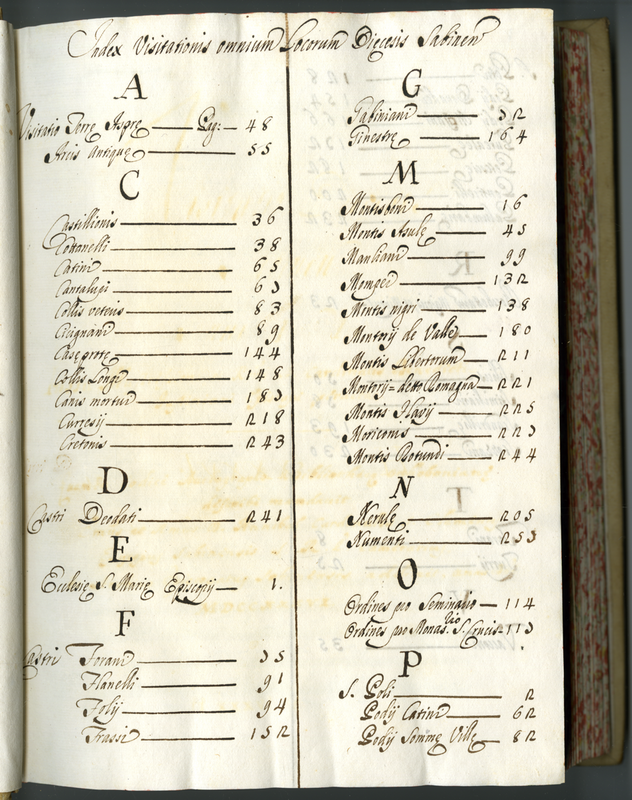 Index Visitationis omnium Locorum Dięcesis Sabinen
A
Visitatio Terrę Asprę — Pag: — 48
Arcis Antiquę — 55
C
Castillionis — 36
Cottanelli — 38
Catini — 65
Cantalupi — 63
Collis veteris — 83
Ciciliani — 89
Caseprotę — 144
Collis Longi — 148
Canis mortui — 183
Curresij — 218
Cretonis — 243
D
Castri Deodati — 241
E
Ecclesię S. Marię Episcopij — 1.
F
Castri Forani — 35
Flanelli — 91
Folij — 94
Frassi — 152
G
Gabiniani — 32
Ginestrę — 164
M
Montisboni — 16
Montis Asulę — 45
Manliani — 99
Mompei — 132
Montis nigri — 138
Montorij de Vallę — 180
Montis Libertorum — 211
Montorij = detto Romagna — 221
Montis Flavij — 225
Moriconis — 223
Montis Rotundi — 244
N
Nerulę — 205
Numenti — 253
O
Ordines pro Seminario — 114
Ordines pro Monas.rio S. Crucis — 113
P
S. Poli — 2
Podij Catini — 62
Podij Sommę Villę — 82